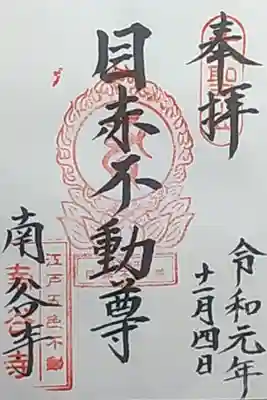 奉拝
令和元年
十一月四日
目赤不動尊
江戸五色不動
南谷寺